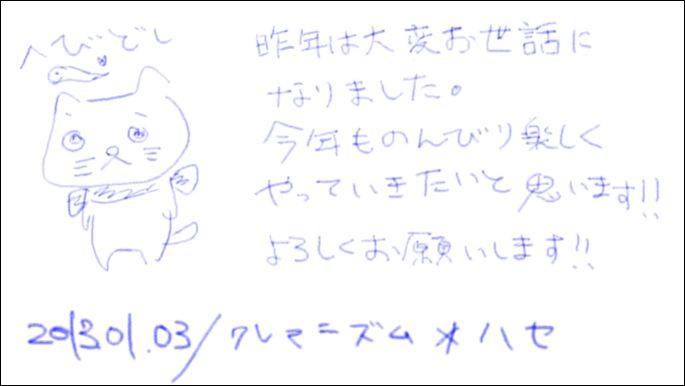 へびどし
昨年は大変お世話に
なりました。
今年ものんびり楽しく
やっていきたいと思います!!
よろしくお願いします!!
2013.01.03/クレマニズム*ハセ